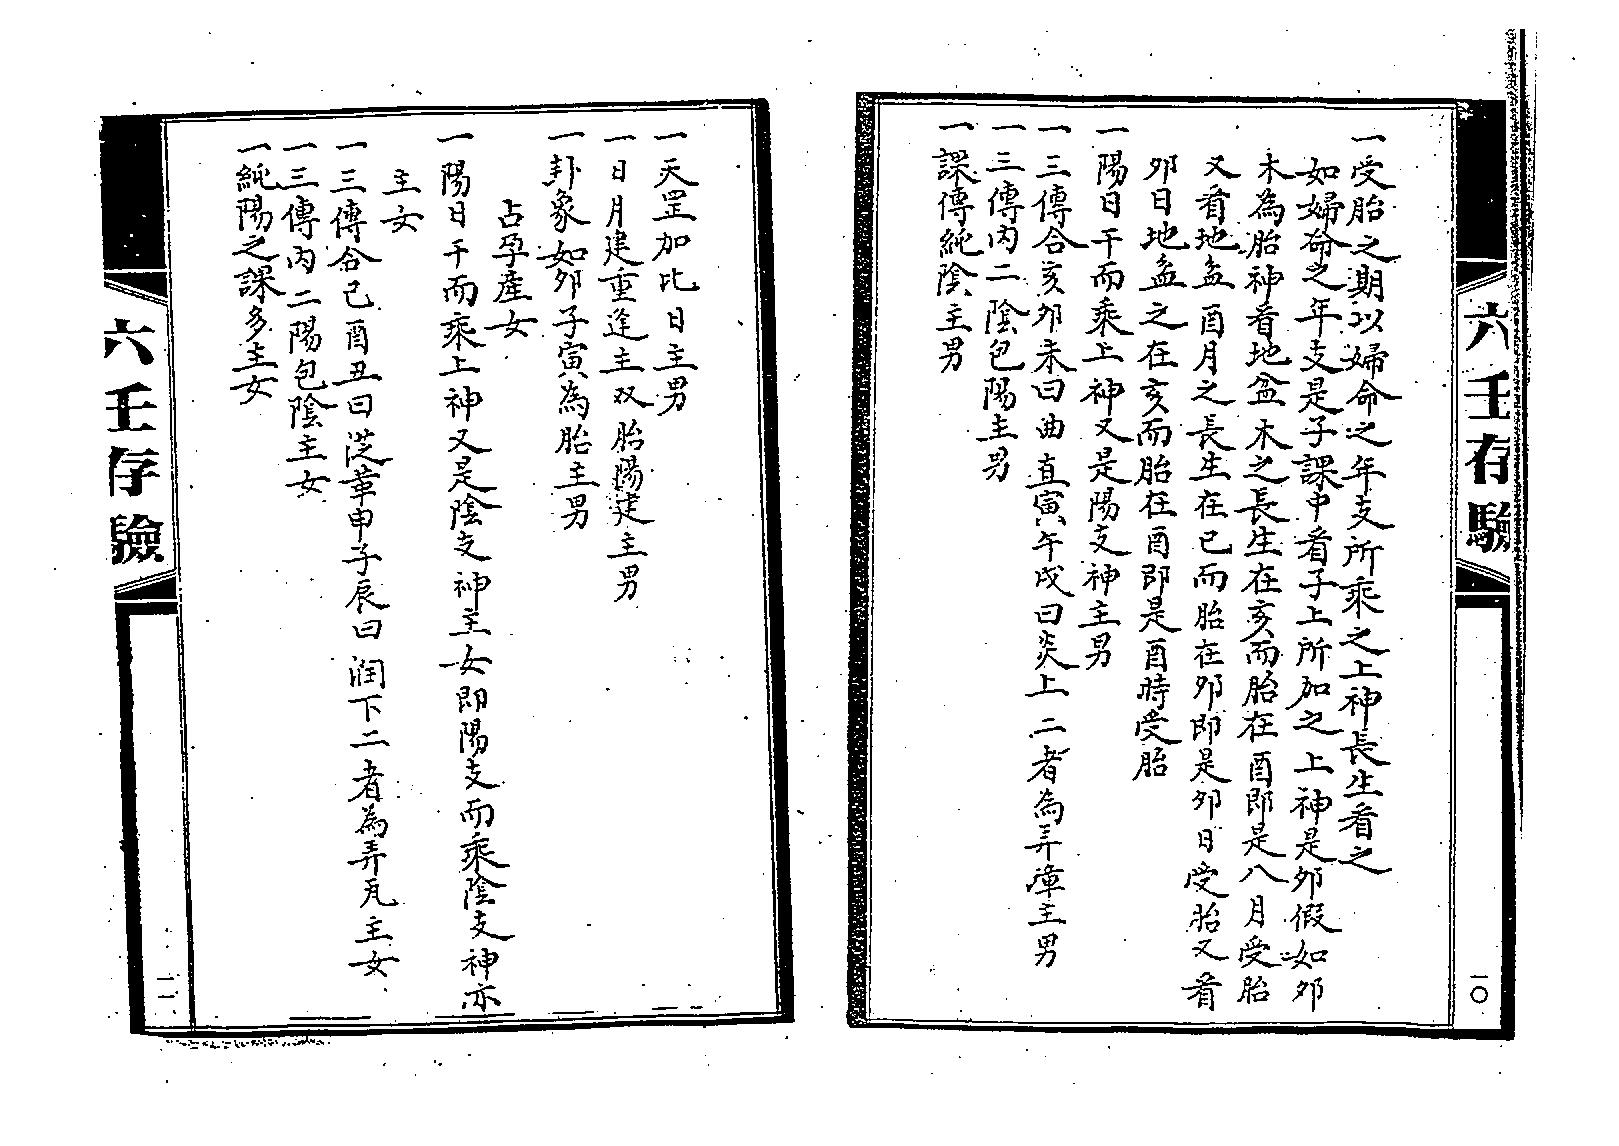 六壬存驗
一〇
一受胎之期以婦命之年支所乘之上神長生看之
如婦命之年支是子課中看子上所加之上神是卯假如卯
木為胎神看地盆木之長生在亥而胎在酉即是八月受胎
又看地盆酉月之長生在巳而胎在卯即是卯日受胎又看
卯日地盆之在亥而胎在酉即是酉時受胎
一陽日干而乘上神又是陽支神主男
一三傳合亥卯未曰曲直寅午戌曰炎上二者為弄璋主男
一三傳內二陰包陽主男
一課傳純陰主男
一天罡加比日主男
一日月建重逢主双胎陽建主男
一卦象如卯子寅為胎主男
占孕產女
一陽日干而乘上神又是陰支神主女即陽支而乘陰支神亦
主女
一三傳合巳酉丑曰從革申子辰曰润下二者為弄瓦主女
一三傳內二陽包陰主女
一純陽之課多主女
六壬存驗
一一